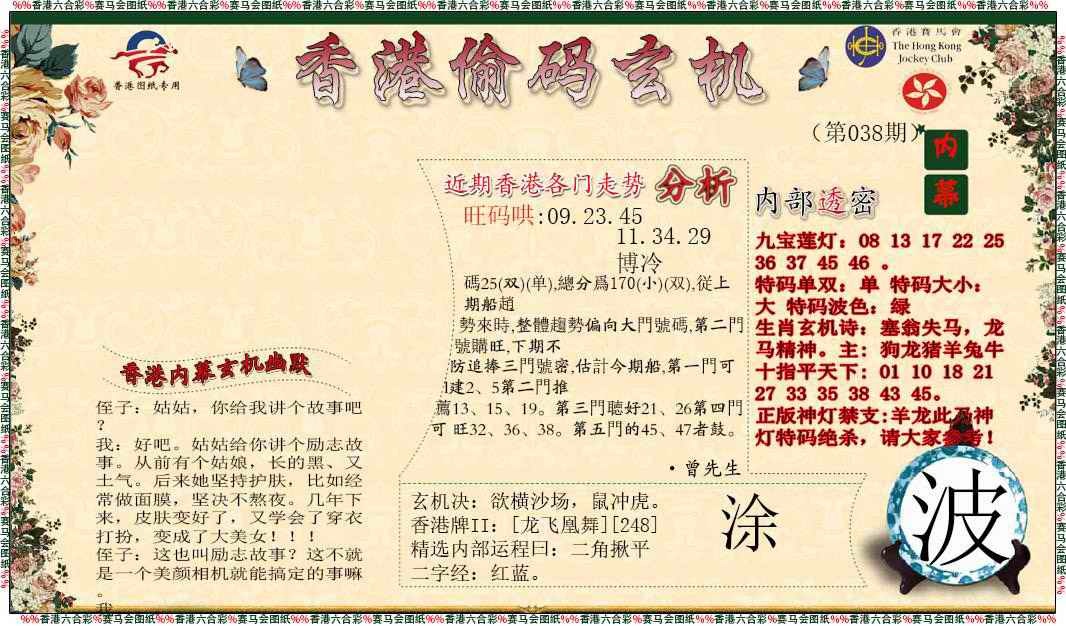 %%香港六合彩%赛马会图纸%%香港六合彩%赛马会图纸%%香港六合彩%赛马会图纸%%香港六合彩%赛马会图纸%%香港六合彩%赛马会图纸%%香港六合彩%赛马会图纸%%香港六合彩%%
香港图纸专用
香港偷码玄机
香港賽馬會
The Hong Kong
Jockey Club
（第038期）
内
幕
近期香港各门走势 分析
旺码哄:09.23.45
11.34.29
博冷
碼25(双)(单),總分爲170(小)(双),從上
期船趙
勢來時,整體趨勢偏向大門號碼,第二門
號購旺,下期不
防追捧三門號密,估計今期船,第一門可
建2、5第二門推
薦13、15、19。第三門聽好21、26第四門
可 旺32、36、38。第五門的45、47者鼓。
·曾先生
内部透密
九宝莲灯：08 13 17 22 25
36 37 45 46 。
特码单双：单 特码大小：
大 特码波色：緑
生肖玄机诗：塞翁失马，龙
马精神。主：狗龙猪羊兔牛
十指平天下：01 10 18 21
27 33 35 38 43 45。
正版神灯禁支:羊龙此乃神
灯特码绝杀，请大家参考！
香港内幕玄机幽默
侄子：姑姑，你给我讲个故事吧
？
我：好吧。姑姑给你讲个励志故
事。从前有个姑娘，长的黑、又
土气。后来她坚持护肤，比如经
常做面膜，坚决不熬夜。几年下
来，皮肤变好了，又学会了穿衣
打扮，变成了大美女！！！
侄子：这也叫励志故事？这不就
是一个美颜相机就能搞定的事嘛
。
我
玄机决：欲横沙场，鼠冲虎。
香港牌II：[龙飞凰舞][248]
精选内部运程曰：二角揪平
二字经：红蓝。
涂
波
%%香港六合彩%赛马会图纸%%香港六合彩%赛马会图纸%%香港六合彩%赛马会图纸%%香港六合彩%赛马会图纸%%香港六合彩%赛马会图纸%%香港六合彩%赛马会图纸%%香港六合彩%%